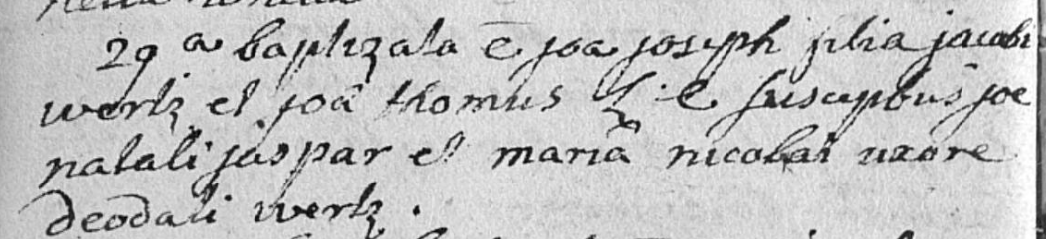 29 a baptizata ē joā joseph filia jacobi
wertz et joā thomus susciptibus joē
natali jaspar et mariā nicolai uxore
deodati wertz .